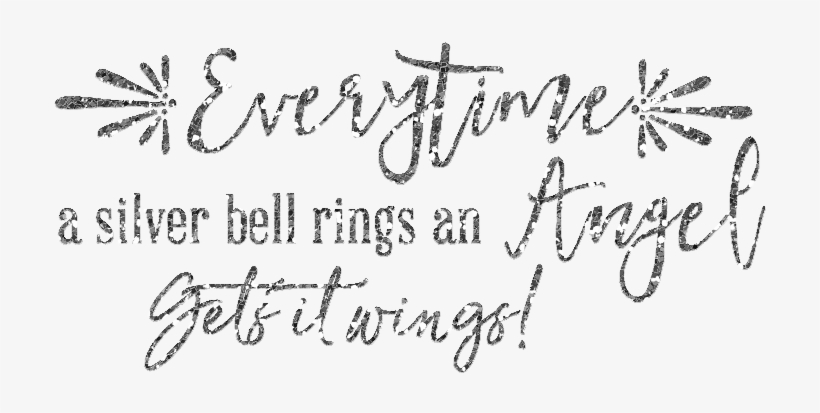 Everytime
a silver bell rings an Angel
Gets it wings!